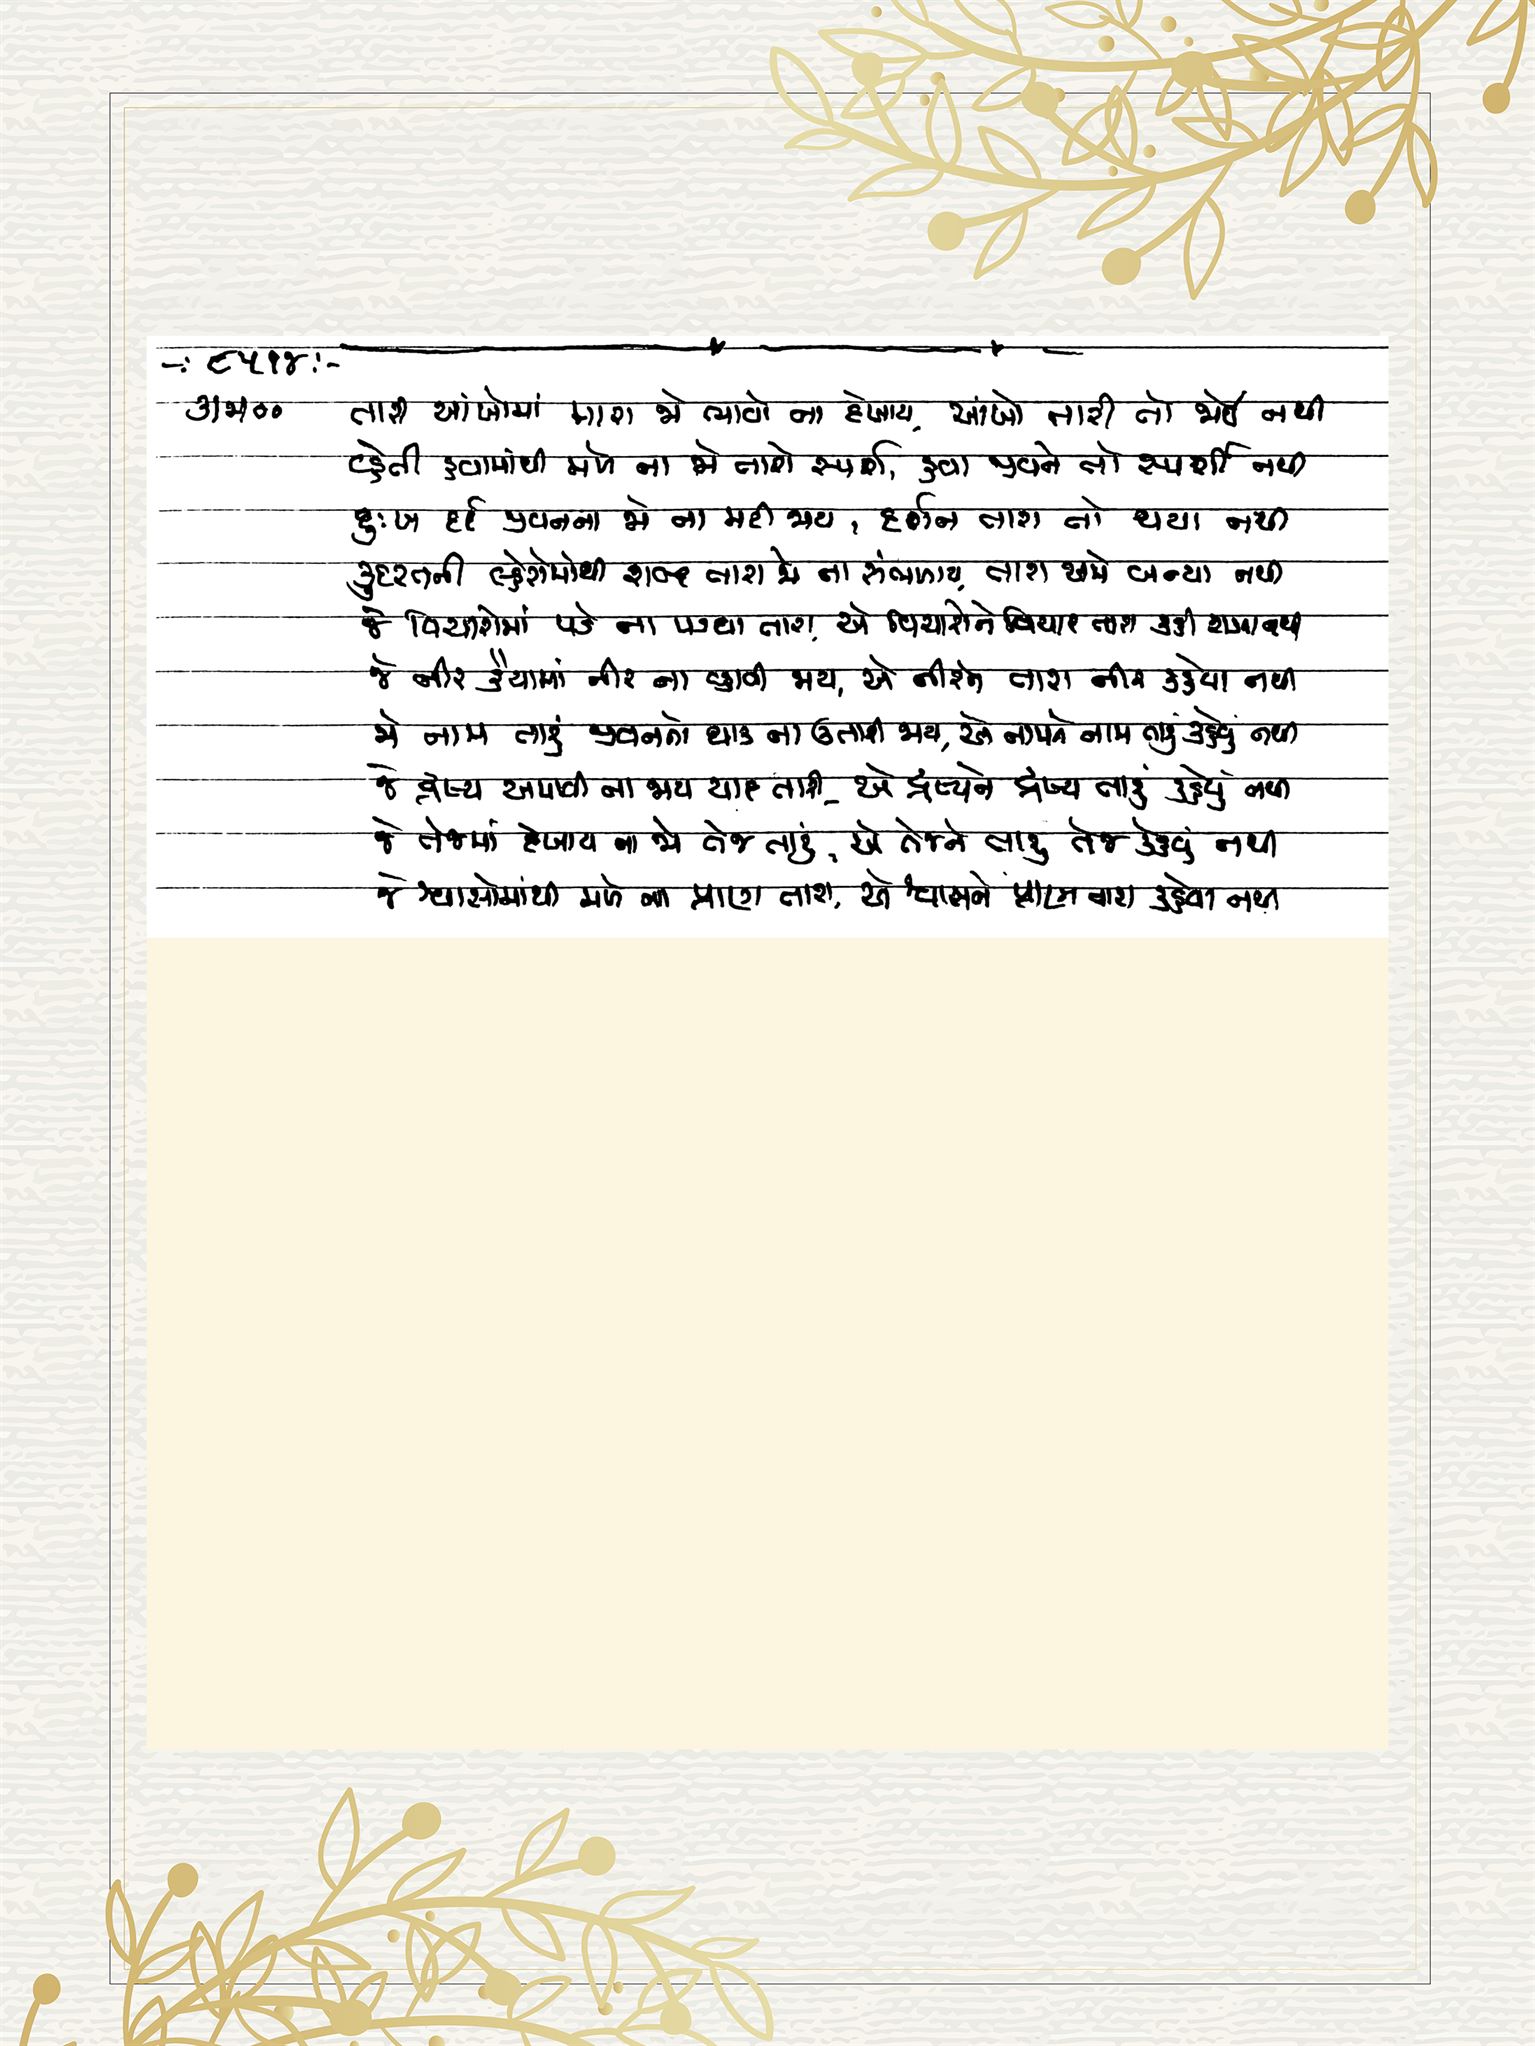 -: ૯૫૧૪:-
૩૧૫૦૦ તારી આંખોમાં મારા જો ભાવો ના દેખાય, આંખો તારી તો જોઈ નથી
વ્હેતી હવામાંથી મળે ના જો તારો સ્પર્શ, હવા જીવને તો સ્પર્શી નથી
દુઃખ દર્દ જીવનના જો ના મટી જાય, દર્શન તારા તો થયા નથી
કુદરતની લ્હેરોમાંથી શબ્દ તારા જો ના સંભળાય, તારા અમે બન્યા નથી
જે વિચારોમાં પડે ના પડઘા તારા, એ વિચારોને વિચાર તારા કહી શકાતા નથી
જે નીર હૈયામાં નીર ના લાવી જાય, એ નીરને તારા નીર કહેવા નથી
જો નામ તારું જીવનનો થાક ના ઉતારી જાય, એ નામને નામ તારું કહેવું નથી
જે દ્રશ્ય અપાવી ના જાય યાદ તારી, એ દ્રશ્યને દ્રશ્ય તારું કહેવું નથી
જે તેજમાં દેખાય ના જો તેજ તારું, એ તેજને તારું તેજ કહેવું નથી
જે શ્વાસોમાંથી મળે ના પ્રાણ તારા, એ શ્વાસને પ્રાણ તારા કહેવા નથી